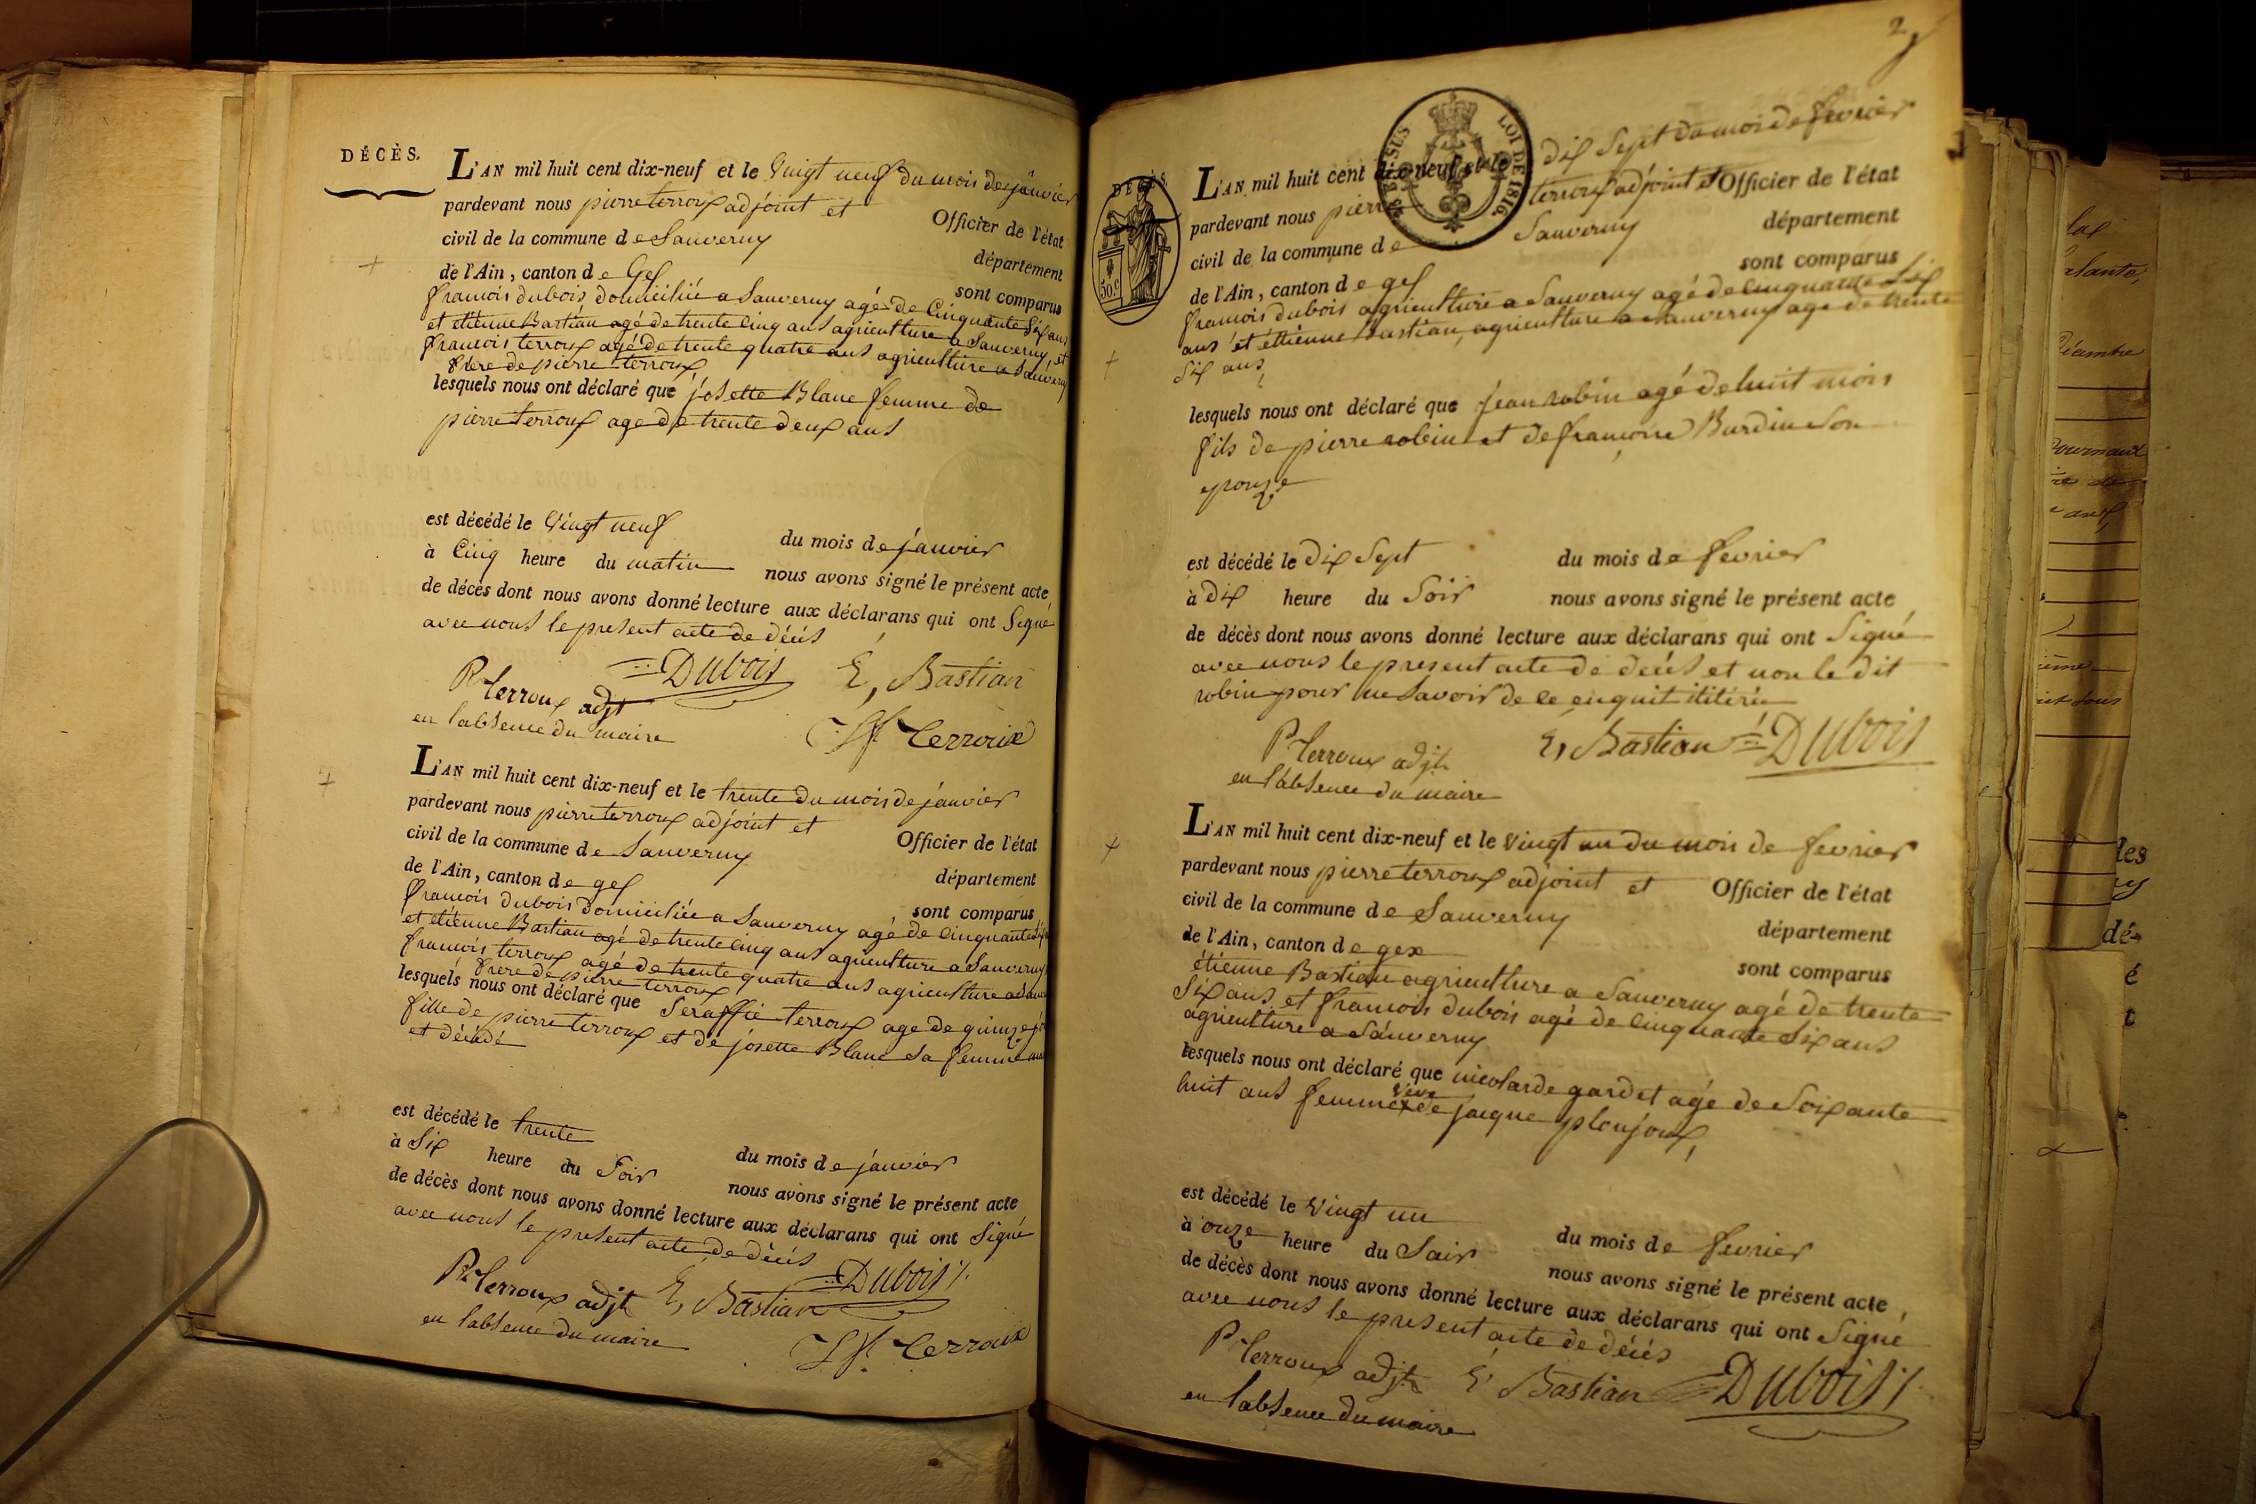 DÉCÈS.
L'AN mil huit cent dix-neuf et le vingt neuf du mois de janvier
pardevant nous pierre terroux adjoint et Officier de l'état
civil de la commune de Sauverny département
de l'Ain, canton de Gex sont comparus
francois dubois domiciliié a Sauverny agé de Cinquante Six ans
et etiénne Bastian agé de trente cinq ans agriculture a Sauverny et
francois terroux agé de trente quatre ans agriculture a Sauverny
frère de pierre terroux
lesquels nous ont déclaré que josette Blanc femme de
pierre terroux age de trente deux ans
est décédé le vingt neuf du mois de janvier
à Cinq heure du matin nous avons signé le présent acte
de décès dont nous avons donné lecture aux déclarans qui ont Signé
avec nous le present acte de décés
DUBOIS E, Bastian
P. Terroux adjt
en l'absence du maire Terroux
L'AN mil huit cent dix-neuf et le trente du mois de janvier
pardevant nous pierre terroux adjoint et Officier de l'état
civil de la commune de Sauverny département
de l'Ain, canton de gex sont comparus
francois dubois domiciliée a Sauverny agé de cinquante Six
et etiénne Bastian agé de trente cinq ans agriculture a Sauverny
francois terroux agé de trente quatre ans agriculture a
frere de pierre terroux
lesquels nous ont déclaré que Seraffie terroux age de quinze
fille de pierre terroux et de josette Blanc sa femme
et décédé
est décédé le trente du mois de janvier
à Six heure du Soir nous avons signé le présent acte
de décès dont nous avons donné lecture aux déclarans qui ont Signé
avec nous le present acte de décés
P. Terroux adjt E, Bastian DUBOIS
en l'absence du maire Terroux
2
DÉCÈS.
50 c
LOI DE 1816.
L'AN mil huit cent dix-neuf et le dix Sept du mois de fevrier
pardevant nous pierre terroux adjoint et Officier de l'état
civil de la commune de Sauverny département
de l'Ain, canton de gex sont comparus
francois dubois agriculture a Sauverny agé de cinquante Six
ans et étiénne Bastian, agriculture a Sauverny age de trente
Six ans
lesquels nous ont déclaré que jean robin agé de huit mois
fils de pierre robin et de francoise Burdin Son
epouze
est décédé le dix Sept du mois de fevrier
à dix heure du Soir nous avons signé le présent acte
de décès dont nous avons donné lecture aux déclarans qui ont Signé
avec nous le present acte de decés et non le dit
robin pour ne Savoir de ce enquit
P. Terroux adjt E, Bastian DUBOIS
en l'absence du maire
L'AN mil huit cent dix-neuf et le vingt un du mois de fevrier
pardevant nous pierre terroux adjoint et Officier de l'état
civil de la commune de Sauverny département
de l'Ain, canton de gex sont comparus
étienne Bastian agriculture a Sauverny agé de trente
Six ans et francois dubois agé de cinquante Six ans
agriculture a Sauverny
lesquels nous ont déclaré que nicolarde gardet agé de Soixante
huit ans femme veve de jacque ploujoux,
est décédé le vingt un du mois de fevrier
à onze heure du Soir nous avons signé le présent acte,
de décès dont nous avons donné lecture aux déclarans qui ont Signé
avec nous le present acte de décés
P. Terroux adjt E, Bastian DUBOIS
en l'absence du maire